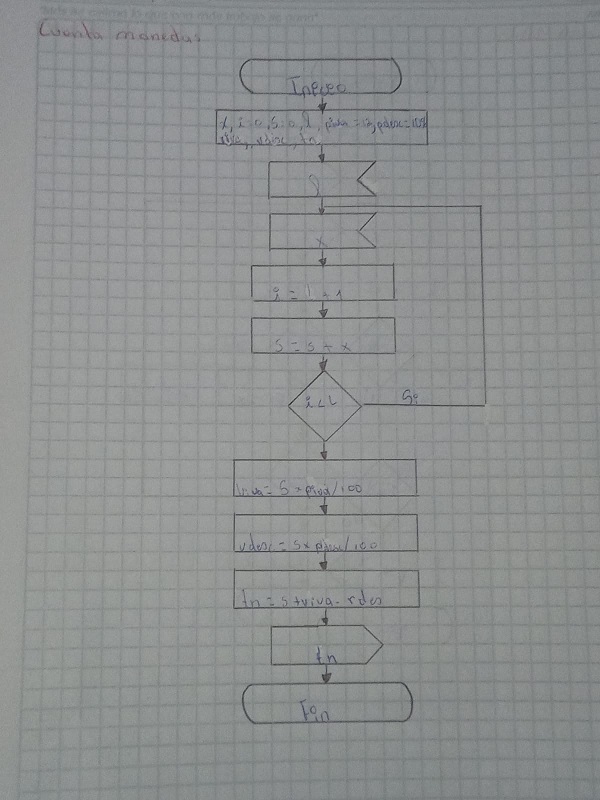 Cuenta monedas
Inicio
x, i=0, s=0, l, piva=12, pdesc=10%
viva, vdesc, tn
l
x
i = i + 1
s = s + x
i < L
Si
viva = S * piva/100
vdesc = s x pdesc/100
tn = s + viva - vdes
tn
Fin